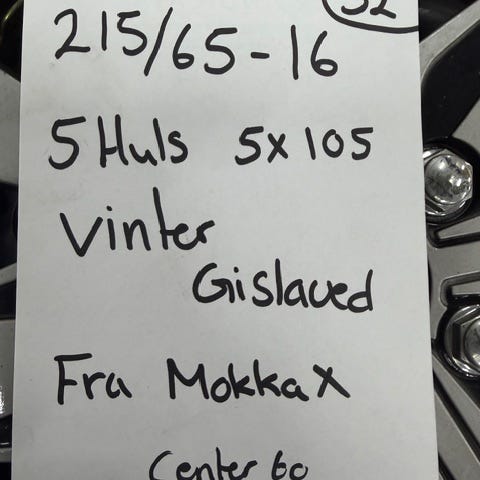 52
215/65-16
5 Huls 5x105
Vinter
Gislaved
Fra Mokka X
Center 60